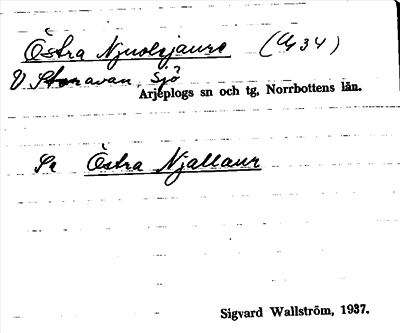 Östra Njuolsjaure (Ug 34)
V Storavan, Sjö
Arjeplogs sn och tg, Norrbottens län.
Se Östra Njallaur
Sigvard Wallström, 1937.